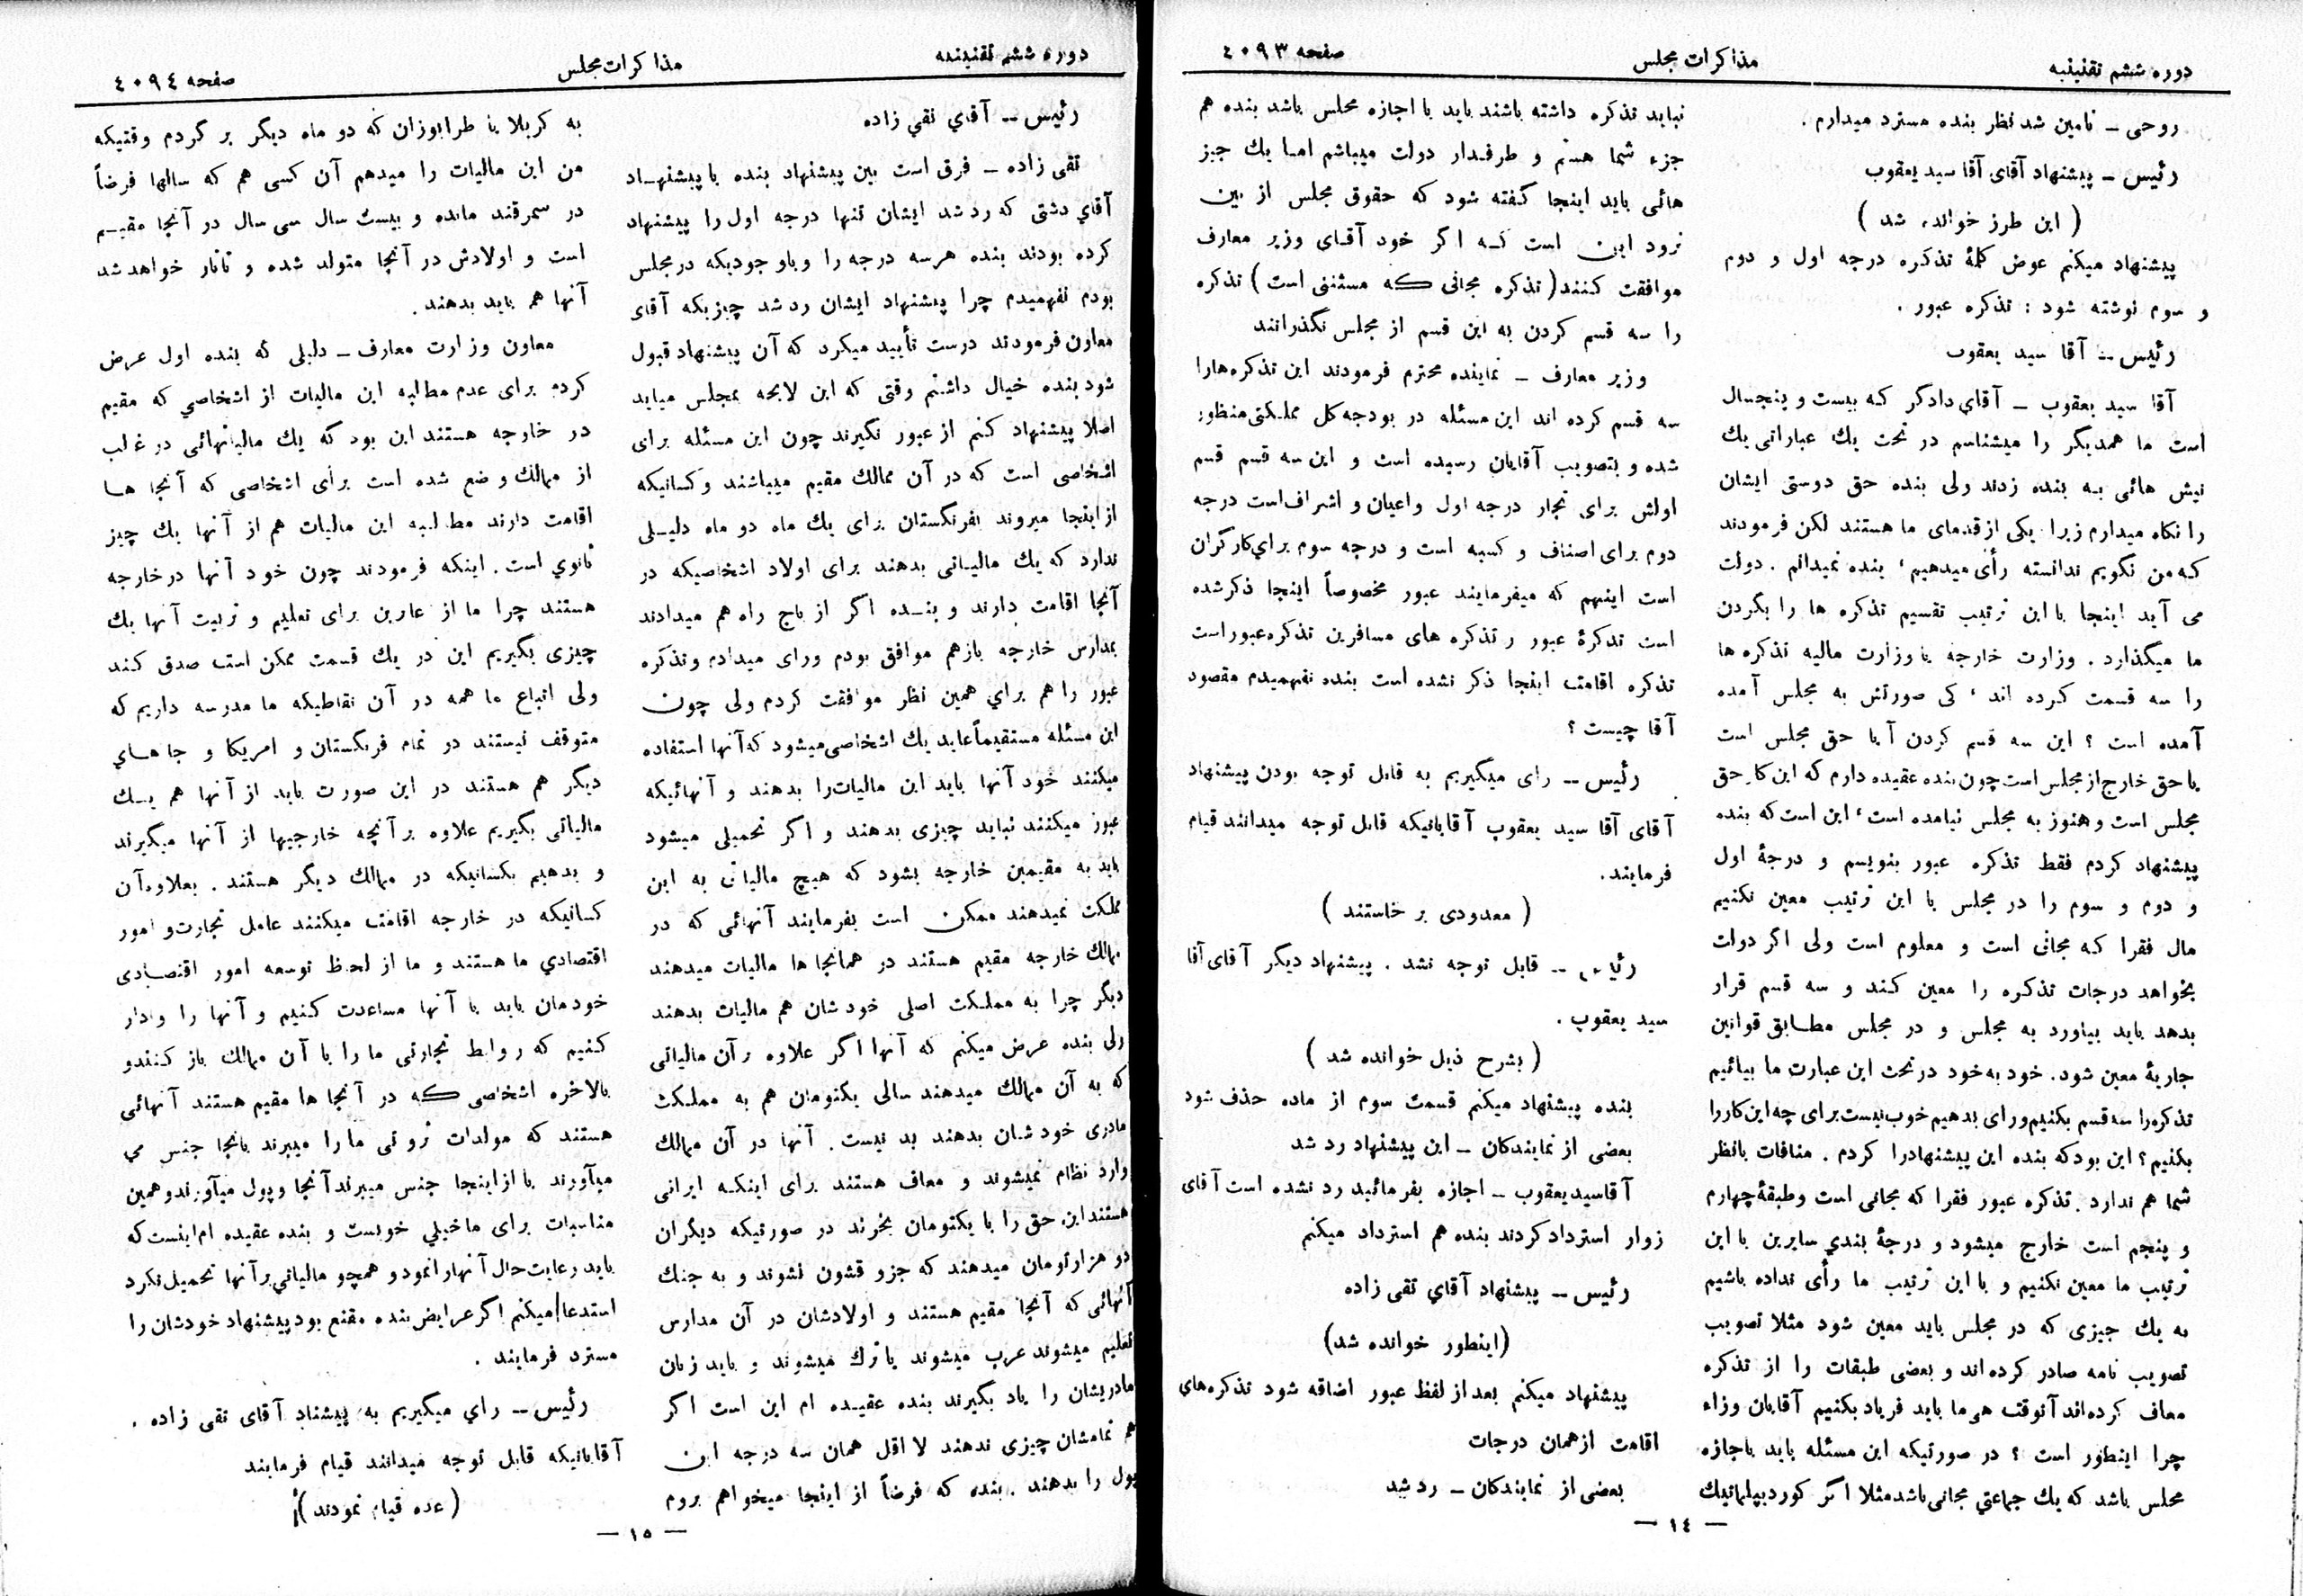 دوره ششم تقنینیه
مذاکرات مجلس
صفحه ۴۰۹۳
روحی ــ تامین شد نظر بنده مسترد میدارم .
رئیس ــ پیشنهاد آقای آقا سید یعقوب
( این طرز خوانده شد )
پیشنهاد میکنم عوض کلمهٔ تذکره درجه اول و دوم
و سوم نوشته شود : تذکره عبور .
رئیس ــ آقا سید یعقوب
آقا سید یعقوب ــ آقای دادگر که بیست و پنجسال
است ما همدیگر را میشناسم در تحت یك عباراتی یك
نیش هائی به بنده زدند ولی بنده حق دوستی ایشان
را نگاه میدارم زیرا یکی از قدمای ما هستند لکن فرمودند
که من نگویم ندانسته رأی میدهیم ، بنده نمیدانم . دولت
می آید اینجا با این ترتیب تقسیم تذکره ها را بگردن
ما میگذارد . وزارت خارجه یا وزارت مالیه تذکره ها
را سه قسمت کرده اند ، کی صورتش به مجلس آمده
آمده است ؟ این سه قسم کردن آیا حق مجلس است
یا حق خارج از مجلس است چون بنده عقیده دارم که این کار حق
مجلس است و هنوز به مجلس نیامده است ، این است که بنده
پیشنهاد کردم فقط تذکره عبور بنویسم و درجهٔ اول
و دوم و سوم را در مجلس با این ترتیب معین نکنیم
مال فقرا که مجانی است و معلوم است ولی اگر دولت
بخواهد درجات تذکره را معین کند و سه قسم قرار
بدهد باید بیاورد به مجلس و در مجلس مطابق قوانین
جاریهٔ معین شود . خود به خود در تحت این عبارت ما بیائیم
تذکره را سه قسم بکنیم و رای بدهیم خوب نیست برای چه این کار را
بکنیم ؟ این بود که بنده این پیشنهاد را کردم . منافات با نظر
شما هم ندارد . تذکره عبور فقرا که مجانی است و طبقهٔ چهارم
و پنجم است خارج میشود و درجهٔ بندي سایرین با این
ترتیب ما معین نکنیم و با این ترتیب ما رأی نداده باشیم
به یك چیزی که در مجلس باید معین شود مثلا تصویب
تصویب نامه صادر کرده اند و بعضی طبقات را از تذکره
معاف کرده اند آنوقت هی ما باید فریاد بکنیم آقایان وزراء
چرا اینطور است ؟ در صورتیکه این مسئله باید باجازه
مجلس باشد که یك جماعتي مجانی باشد مثلا اگر کوردیپلماتیك
نباید تذکره داشته باشند باید با اجازه مجلس باشد بنده هم
جزء شما هستم و طرفدار دولت میباشم اما یك چیز
هائی باید اینجا گفته شود که حقوق مجلس از بین
نرود این است که اگر خود آقای وزیر معارف
موافقت کنند ( تذکره مجانی که مستثنی است ) تذکره
را سه قسم کردن به این قسم از مجلس نگذرانند
وزیر معارف ــ نماینده محترم فرمودند این تذکره ها را
سه قسم کرده اند این مسئله در بودجه کل مملکتی منظور
شده و بتصویب آقایان رسیده است و این سه قسم قسم
اولش برای تجار درجه اول و اعیان و اشراف است درجه
دوم برای اصناف و کسبه است و درجه سوم برای کارگران
است اینهم که میفرمایند عبور مخصوصاً اینجا ذکر شده
است تذکرهٔ عبور و تذکره های مسافرین تذکره عبور است
تذکره اقامت اینجا ذکر نشده است بنده نفهمیدم مقصود
آقا چیست ؟
رئیس ــ رای میگیریم به قابل توجه بودن پیشنهاد
آقای آقا سید یعقوب آقایانیکه قابل توجه میدانند قیام
فرمایند .
( معدودی بر خاستند )
رئیس ــ قابل توجه نشد . پیشنهاد دیگر آقای آقا
سید یعقوب .
( بشرح ذیل خوانده شد )
بنده پیشنهاد میکنم قسمت سوم از ماده حذف شود
بعضی از نمایندگان ــ این پیشنهاد رد شد
آقا سید یعقوب ــ اجازه بفرمائید رد نشده است آقای
زوار استرداد کردند بنده هم استرداد میکنم
رئیس ــ پیشنهاد آقاي تقی زاده
(اینطور خوانده شد)
پیشنهاد میکنم بعد از لفظ عبور اضافه شود تذکره های
اقامت از همان درجات
بعضی از نمایندگان ــ رد شد
— ۱۴ —
دوره ششم تقنینیه
مذاکرات مجلس
صفحه ۴۰۹۴
رئیس ــ آقاي تقي زاده
تقی زاده ــ فرق است بین پیشنهاد بنده با پیشنهاد
آقاي دشتی که رد شد ایشان تنها درجه اول را پیشنهاد
کرده بودند بنده هر سه درجه را و باوجودیکه در مجلس
بودم نفهمیدم چرا پیشنهاد ایشان رد شد چیزیکه آقای
معاون فرمودند درست تأیید میکرد که آن پیشنهاد قبول
شود بنده خیال داشتم وقتی که این لایحه بمجلس میاید
اصلا پیشنهاد کنم از عبور نگیرند چون این مسئله برای
اشخاصی است که در آن ممالك مقیم میباشند و کسانیکه
از اینجا میروند بفرنگستان برای یك ماه دو ماه دلیلی
ندارد که یك مالیاتی بدهند برای اولاد اشخاصیکه در
آنجا اقامت دارند و بنده اگر از باج راه هم میدادند
بمدارس خارجه بازهم موافق بودم و رای میدادم و تذکره
عبور را هم براي همین نظر موافقت کردم ولی چون
این مسئله مستقیماً عاید یك اشخاصی میشود که آنها استفاده
میکنند خود آنها باید این مالیات را بدهند و آنهائیکه
عبور میکنند نباید چیزی بدهند و اگر تحمیلی میشود
باید به مقیمین خارجه بشود که هیچ مالیاتی به این
مملکت نمیدهند ممکن است بفرمایند آنهائی که در
ممالك خارجه مقیم هستند در همانجاها مالیات میدهند
دیگر چرا به مملکت اصلی خودشان هم مالیات بدهند
ولی بنده عرض میکنم که آنها اگر علاوه بر آن مالیاتی
که به آن ممالك میدهند سالی یکتومان هم به مملکت
مادری خودشان بدهند بد نیست . آنها در آن ممالك
وارد نظام نمیشوند و معاف هستند برای اینکه ایرانی
هستند این حق را با یکتومان بخرند در صورتیکه دیگران
دو هزار تومان میدهند که جزو قشون نشوند و به جنك
آنهائی که آنجا مقیم هستند و اولادشان در آن مدارس
تعلیم میشوند عرب میشوند یا ترك میشوند و باید زبان
مادریشان را یاد بگیرند بنده عقیده ام این است اگر
هم تمامشان چیزی ندهند لا اقل همان سه درجه این
پول را بدهند . بنده که فرضاً از اینجا میخواهم بروم
به کربلا یا طرابوزان که دو ماه دیگر بر گردم وقتیکه
من این مالیات را میدهم آن کسی هم که سالها فرضاً
در سمرقند مانده و بیست سال سی سال در آنجا مقیم
است و اولادش در آنجا متولد شده و تاتار خواهد شد
آنها هم باید بدهند .
معاون وزارت معارف ــ دلیلی که بنده اول عرض
کردم برای عدم مطالبه این مالیات از اشخاصي که مقیم
در خارجه هستند این بود که یك مالیاتهائی در غالب
از ممالك وضع شده است برای اشخاصی که آنجا ها
اقامت دارند مطالبه این مالیات هم از آنها یك چیز
ثانوي است . اینکه فرمودند چون خود آنها در خارجه
هستند چرا ما از عابرین برای تعلیم و تربیت آنها یك
چیزی بگیریم این در یك قسمت ممکن است صدق کند
ولی اتباع ما همه در آن نقاطیکه ما مدرسه داریم که
متوقف نیستند در تمام فرنگستان و امریکا و جاهاي
دیگر هم هستند در این صورت باید از آنها هم یك
مالیاتی بگیریم علاوه بر آنچه خارجیها از آنها میگیرند
و بدهیم بکسانیکه در ممالك دیگر هستند . بعلاوه آن
کسانیکه در خارجه اقامت میکنند عامل تجارت و امور
اقتصادي ما هستند و ما از لحاظ توسعه امور اقتصادی
خودمان باید با آنها مساعدت کنیم و آنها را وادار
کنیم که روابط تجارتی ما را با آن ممالك باز کنند و
بالاخره اشخاصی که در آنجا ها مقیم هستند آنهائی
هستند که مولدات ثروتی ما را میبرند بانجا جنس می
میآورند یا از اینجا جنس میبرند آنجا و پول میآورند و همین
مناسبات برای ما خیلي خوبست و بنده عقیده ام اینست که
باید رعایت حال آنها را نمود و همچو مالیاتي بر آنها تحمیل نکرد
استدعا میکنم اگر عرایض بنده مقنع بود پیشنهاد خودشان را
مسترد فرمایند .
رئیس ــ راي میگیریم به پیشناد آقای تقی زاده .
آقایانیکه قابل توجه میدانند قیام فرمایند
( عده قیام نمودند )
— ۱۵ —